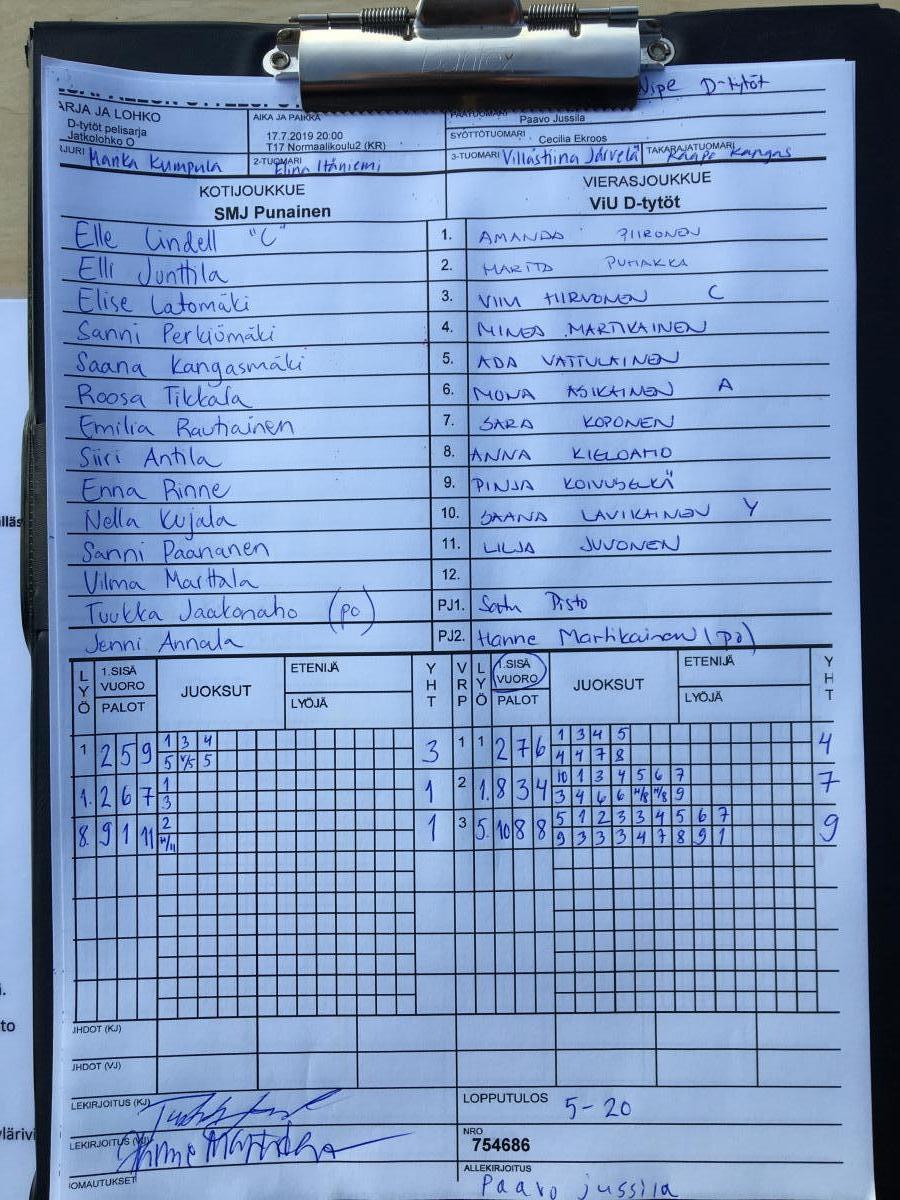 Dontex
Vipe D-tytöt
ARJA JA LOHKO
D-tytöt pelisarja
Jatkolohko O
AIKA JA PAIKKA
17.7.2019 20:00
T17 Normaalikoulu2 (KR)
PÄÄTUOMARI
Paavo Jussila
SYÖTTÖTUOMARI
Cecilia Ekroos
AJURI Manka Kumpula
2-TUOMARI Elina Itäniemi
3-TUOMARI Villastiina Järvelä
TAKARAJATUOMARI Kaapo Kangas
KOTIJOUKKUE
SMJ Punainen
VIERASJOUKKUE
ViU D-tytöt
Elle Lindell "C" 1. AMANDA PIIRONEN
Elli Junttila 2. MARITA PUHAKKA
Elise Latomäki 3. VIIVI HIRVONEN C
Sanni Perkiömäki 4. MINEA MARTIKAINEN
Saana Kangasmäki 5. ADA VATTULAINEN
Roosa Tikkala 6. MONA ASIKAINEN A
Emilia Rautiainen 7. SARA KOPONEN
Siiri Antila 8. ANNA KIELOAHO
Enna Rinne 9. PINJA KOIVUSELKÄ
Nella Kujala 10. SAANA LAVIKAINEN Y
Sanni Paananen 11. LILJA JUVONEN
Vilma Marttala 12.
Tuukka Jaakonaho (po) PJ1. Satu Pisto
Jenni Annala PJ2. Hanne Martikainen (po)
LYÖ 1.SISÄ VUORO PALOT JUOKSUT ETENIJÄ LYÖJÄ YHT VRP LYÖ 1.SISÄ VUORO PALOT JUOKSUT ETENIJÄ LYÖJÄ YHT
1 2 5 9 1 3 4 3 1 1 2 7 6 1 3 4 5 4
5 V/5 5 4 4 7 8
1. 2 6 7 1 1 2 1. 8 3 4 10 1 3 4 5 6 7 7
3 3 4 6 6 H/8 H/8 9
8. 9 1 11 2 1 3 5. 10 8 8 5 1 2 3 3 4 5 6 7 9
H/11 9 3 3 3 4 7 8 9 1
JHDOT (KJ)
JHDOT (VJ)
LEKIRJOITUS (KJ)
LOPPUTULOS 5-20
LEKIRJOITUS (VJ)
NRO
754686
ALLEKIRJOITUS
Paavo jussila
OMAUTUKSET